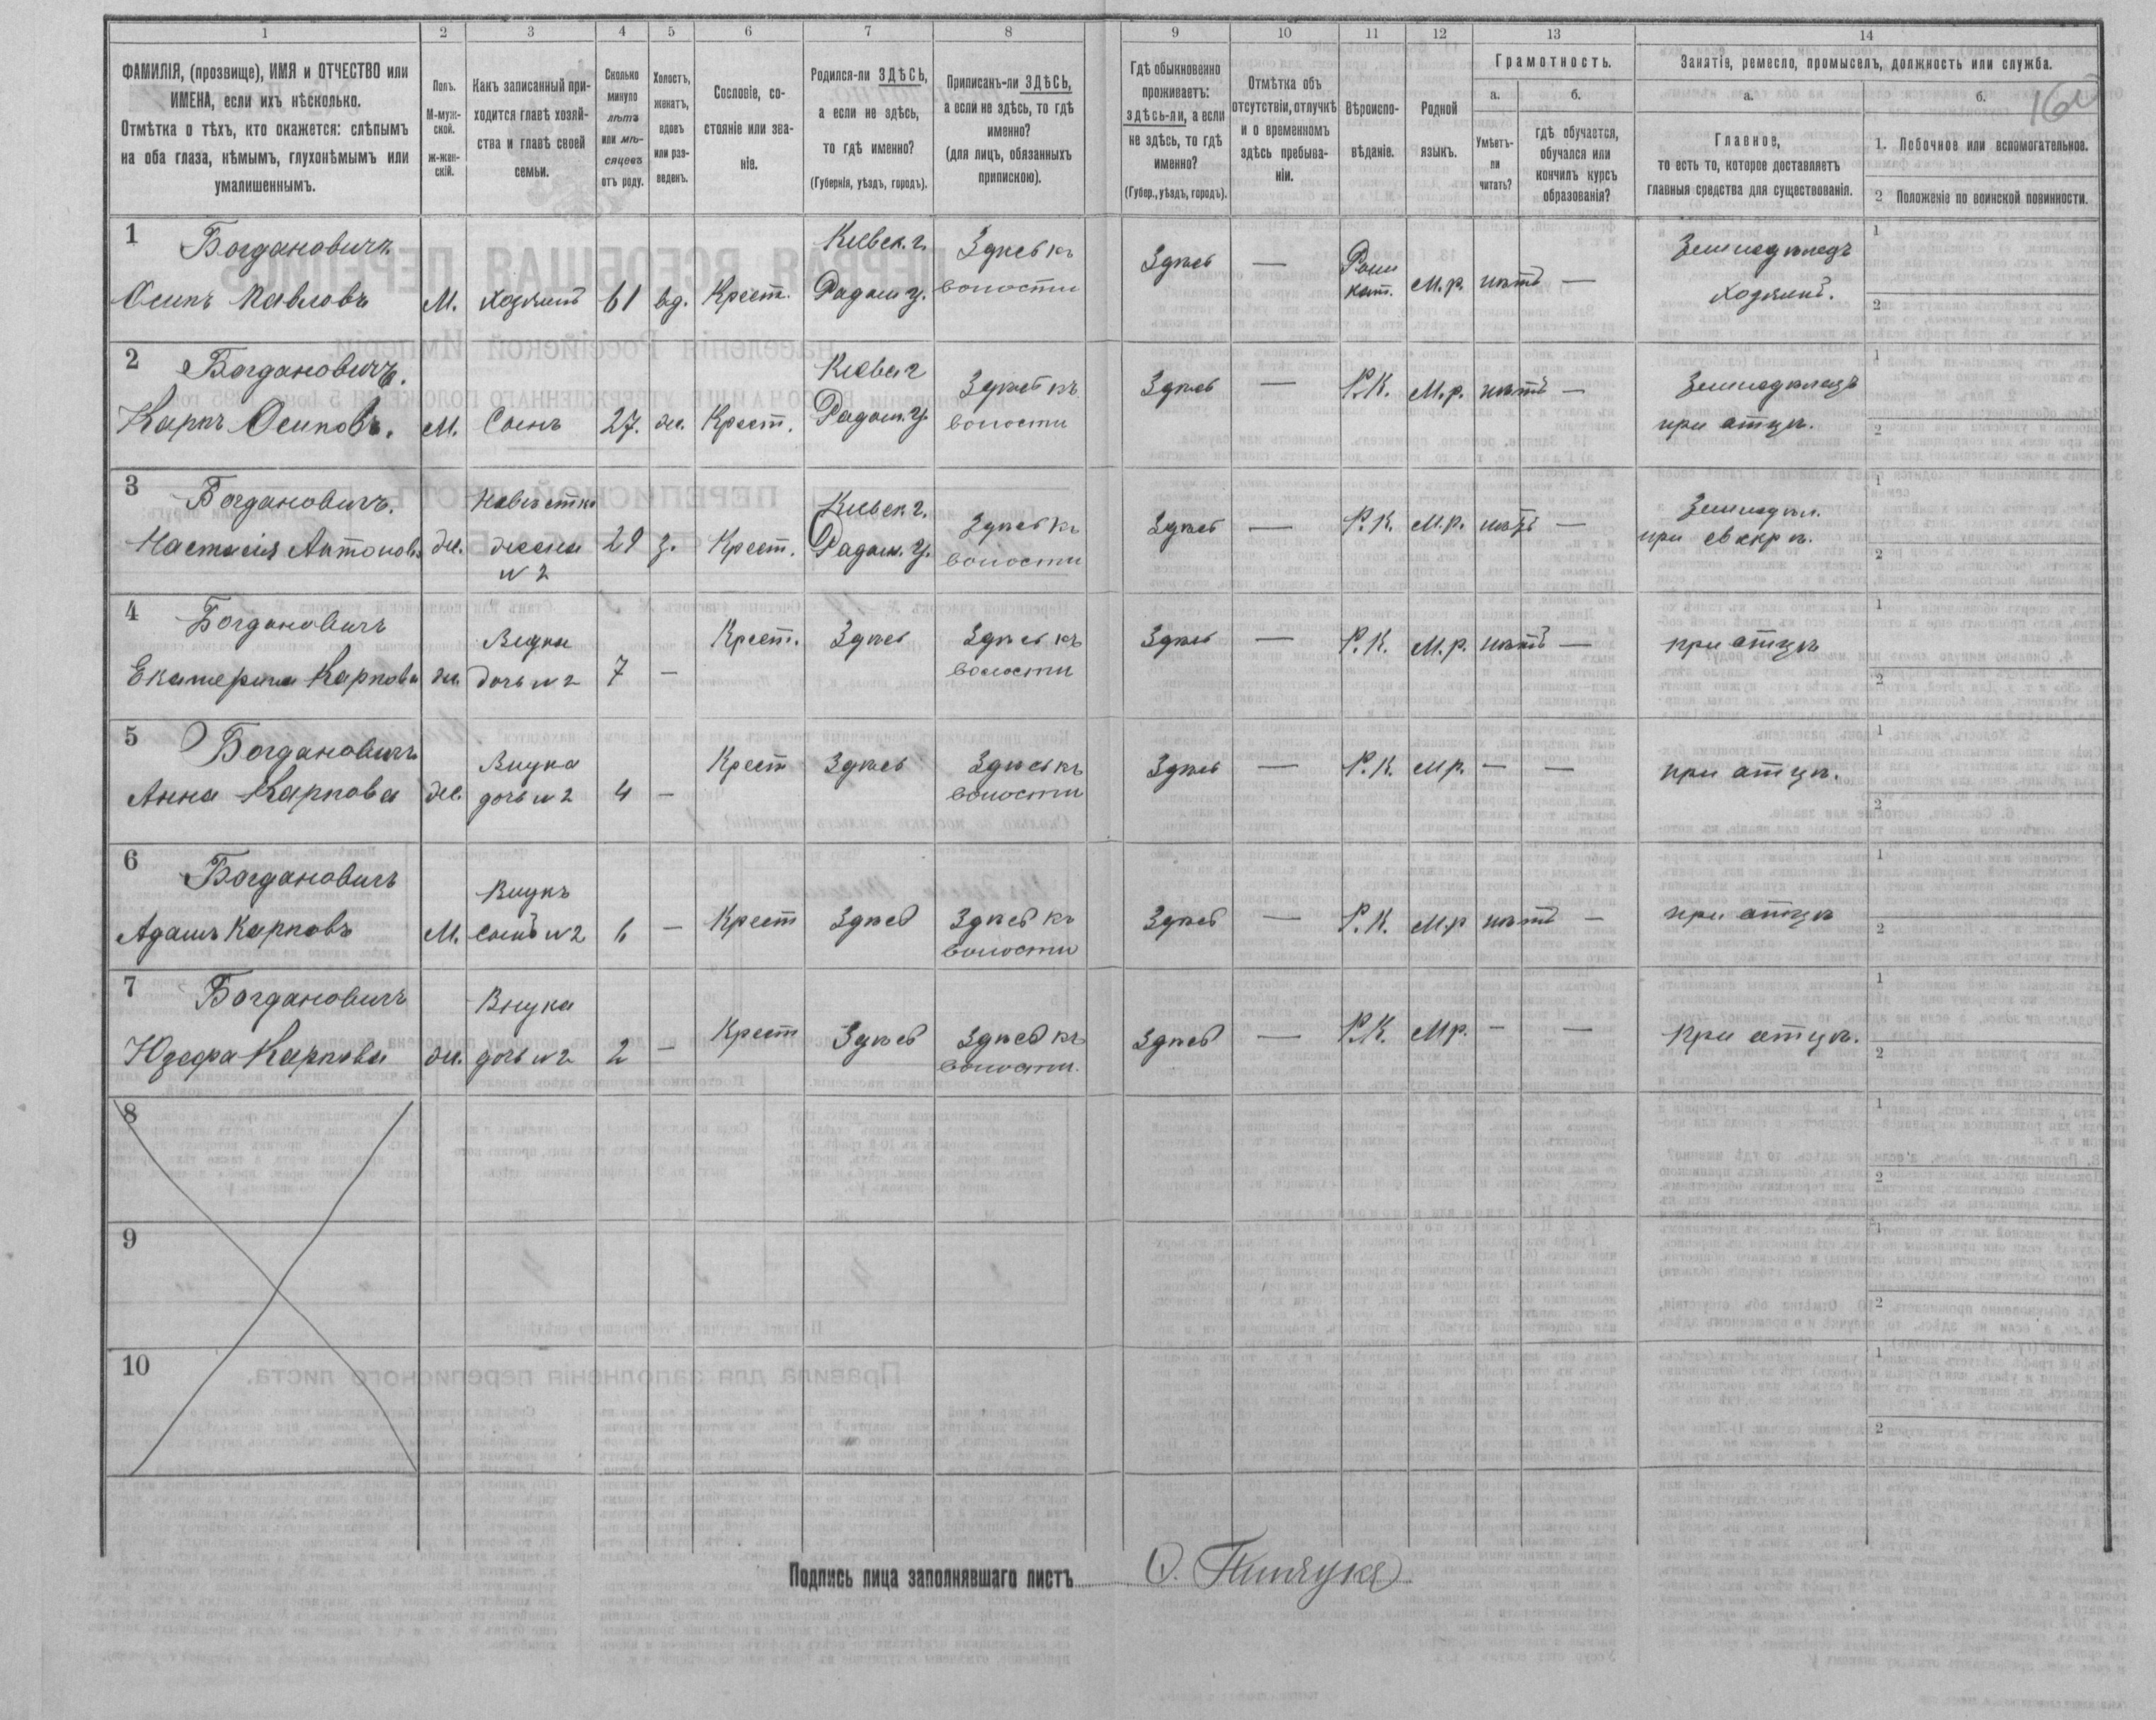 1 2 3 4 5 6 7 8 9 10 11 12 13 14
ФАМИЛІЯ, (прозвище), ИМЯ и ОТЧЕСТВО или
ИМЕНА, если ихъ нѣсколько.
Отмѣтка о тѣхъ, кто окажется: слѣпымъ
на оба глаза, нѣмымъ, глухонѣмымъ или
умалишеннымъ.
Полъ.
М-муж-
ской.
ж-жен-
скій.
Какъ записанный при-
ходится главѣ хозяй-
ства и главѣ своей
семьи.
Сколько
минуло
лѣтъ
или мѣ-
сяцевъ
отъ роду.
Холостъ,
женатъ,
вдовъ
или раз-
веденъ.
Сословіе, со-
стояніе или зва-
ніе.
Родился-ли ЗДѢСЬ,
а если не здѣсь,
то гдѣ именно?
(Губернія, уѣздъ, городъ).
Приписанъ-ли ЗДѢСЬ,
а если не здѣсь, то гдѣ
именно?
(для лицъ, обязанныхъ
припискою).
Гдѣ обыкновенно
проживаетъ:
здѣсь-ли, а если
не здѣсь, то гдѣ
именно?
(Губер., уѣздъ, городъ).
Отмѣтка объ
отсутствіи, отлучкѣ
и о временномъ
здѣсь пребыва-
ніи.
Вѣроиспо-
вѣданіе.
Родной
языкъ.
Грамотность.
а.
Умѣетъ-
ли
читать?
б.
гдѣ обучается,
обучался или
кончилъ курсъ
образованія?
Занятіе, ремесло, промыселъ, должность или служба.
а.
Главное,
то есть то, которое доставляетъ
главныя средства для существованія.
б.
1. Побочное или вспомогательное.
2 Положеніе по воинской повинности.
1 Богдановичъ Кіевск. г. Здѣсь къ Здѣсь — Рим Земледѣлецъ 1
Осипъ Павловъ М. Хозяинъ 61 вд. Крест. Радом у. волости кат. М.р. нѣтъ — Хозяинъ. 2
2 Богдановичъ. Кіевс г Здѣсь къ Здѣсь — Р.К. М.р. нѣтъ — Земледѣлецъ 1
Карпъ Осиповъ. М. Сынъ 27. ж. Крест. Радом. у. волости при отцѣ. 2
3 Богдановичъ. Невѣстка Кіевск г. Здѣсь къ Здѣсь — Р.К. М.р. нѣтъ — Земледѣл. 1
Настасія Антонова ж. жена 29 з. Крест. Радом. у. волости при свекрѣ. 2
№ 2
4 Богдановичъ Внучка Крест. Здѣсь Здѣсь къ Здѣсь — Р.К. М.р. нѣтъ — при отцѣ 1
Екатерина Карпова ж. дочь №2 7 — волости 2
5 Богдановичъ Внучка Крест Здѣсь Здѣсь къ Здѣсь — Р.К. М р. — — при отцѣ. 1
Анна Карпова ж. дочь №2 4 — волости 2
6 Богдановичъ Внукъ Крест Здѣсь Здѣсь къ Здѣсь — Р.К. М.р нѣтъ — при отцѣ 1
Адамъ Карповъ М. сынъ №2 6 — волости 2
7 Богдановичъ Внучка Крест Здѣсь Здѣсь къ Здѣсь — Р.К. М р. — — при отцѣ. 1
Юзефа Карпова ж. дочь №2 2 — волости. 2
8 1
2
9 1
2
10 1
2
Подпись лица заполнявшаго листъ